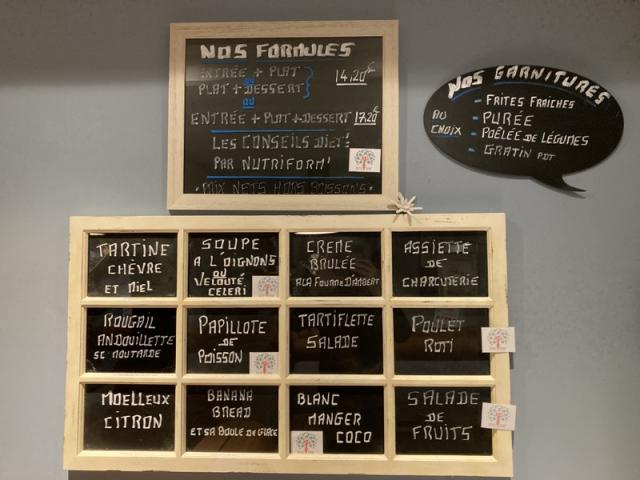 NOS FORMULES
ENTRÉE + PLAT
ou
PLAT + DESSERT
14,20€
ou
ENTRÉE + PLAT + DESSERT 17,20€
LES CONSEILS DIET'
PAR NUTRIFORM'
PRIX NETS HORS BOISSONS
NOS GARNITURES
AU CHOIX
- FRITES FRAÎCHES
- PURÉE
- POÊLÉE DE LÉGUMES
- GRATIN PDT
TARTINE
CHÈVRE
ET MIEL
SOUPE
A L'OIGNONS
OU
VELOUTÉ
CELERI
CREME
BRULÉE
A LA FOURME D'AMBERT
ASSIETTE
DE
CHARCUTERIE
ROUGAIL
ANDOUILLETTE
SC MOUTARDE
PAPILLOTE
DE
POISSON
TARTIFLETTE
SALADE
POULET
ROTI
MOELLEUX
CITRON
BANANA
BREAD
ET SA BOULE DE GLACE
BLANC
MANGER
COCO
SALADE
DE
FRUITS